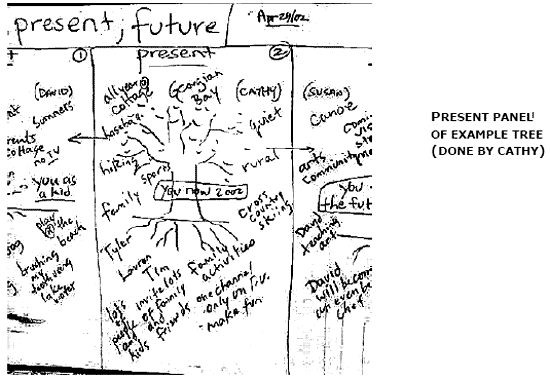 present; future
Apr 29/02
①
(DAVID)
summers
no TV
you as
a kid
play
@ the
beach
brushing
lake
water
present
②
all year @
cottage
Georgian
Bay
(CATHY)
baseball
quiet
hiking
sports
rural
You now 2002
family
cross
country
skiing
Tyler
Lauren
Tim
family
activities
invite lots
people of family
and
kids friends
one channel
only on t.v.
make fun
(SUSAN)
canoe
arts
community
You
the fut
David
teaching
art
David
will become
chef
PRESENT PANEL
OF EXAMPLE TREE
(DONE BY CATHY)